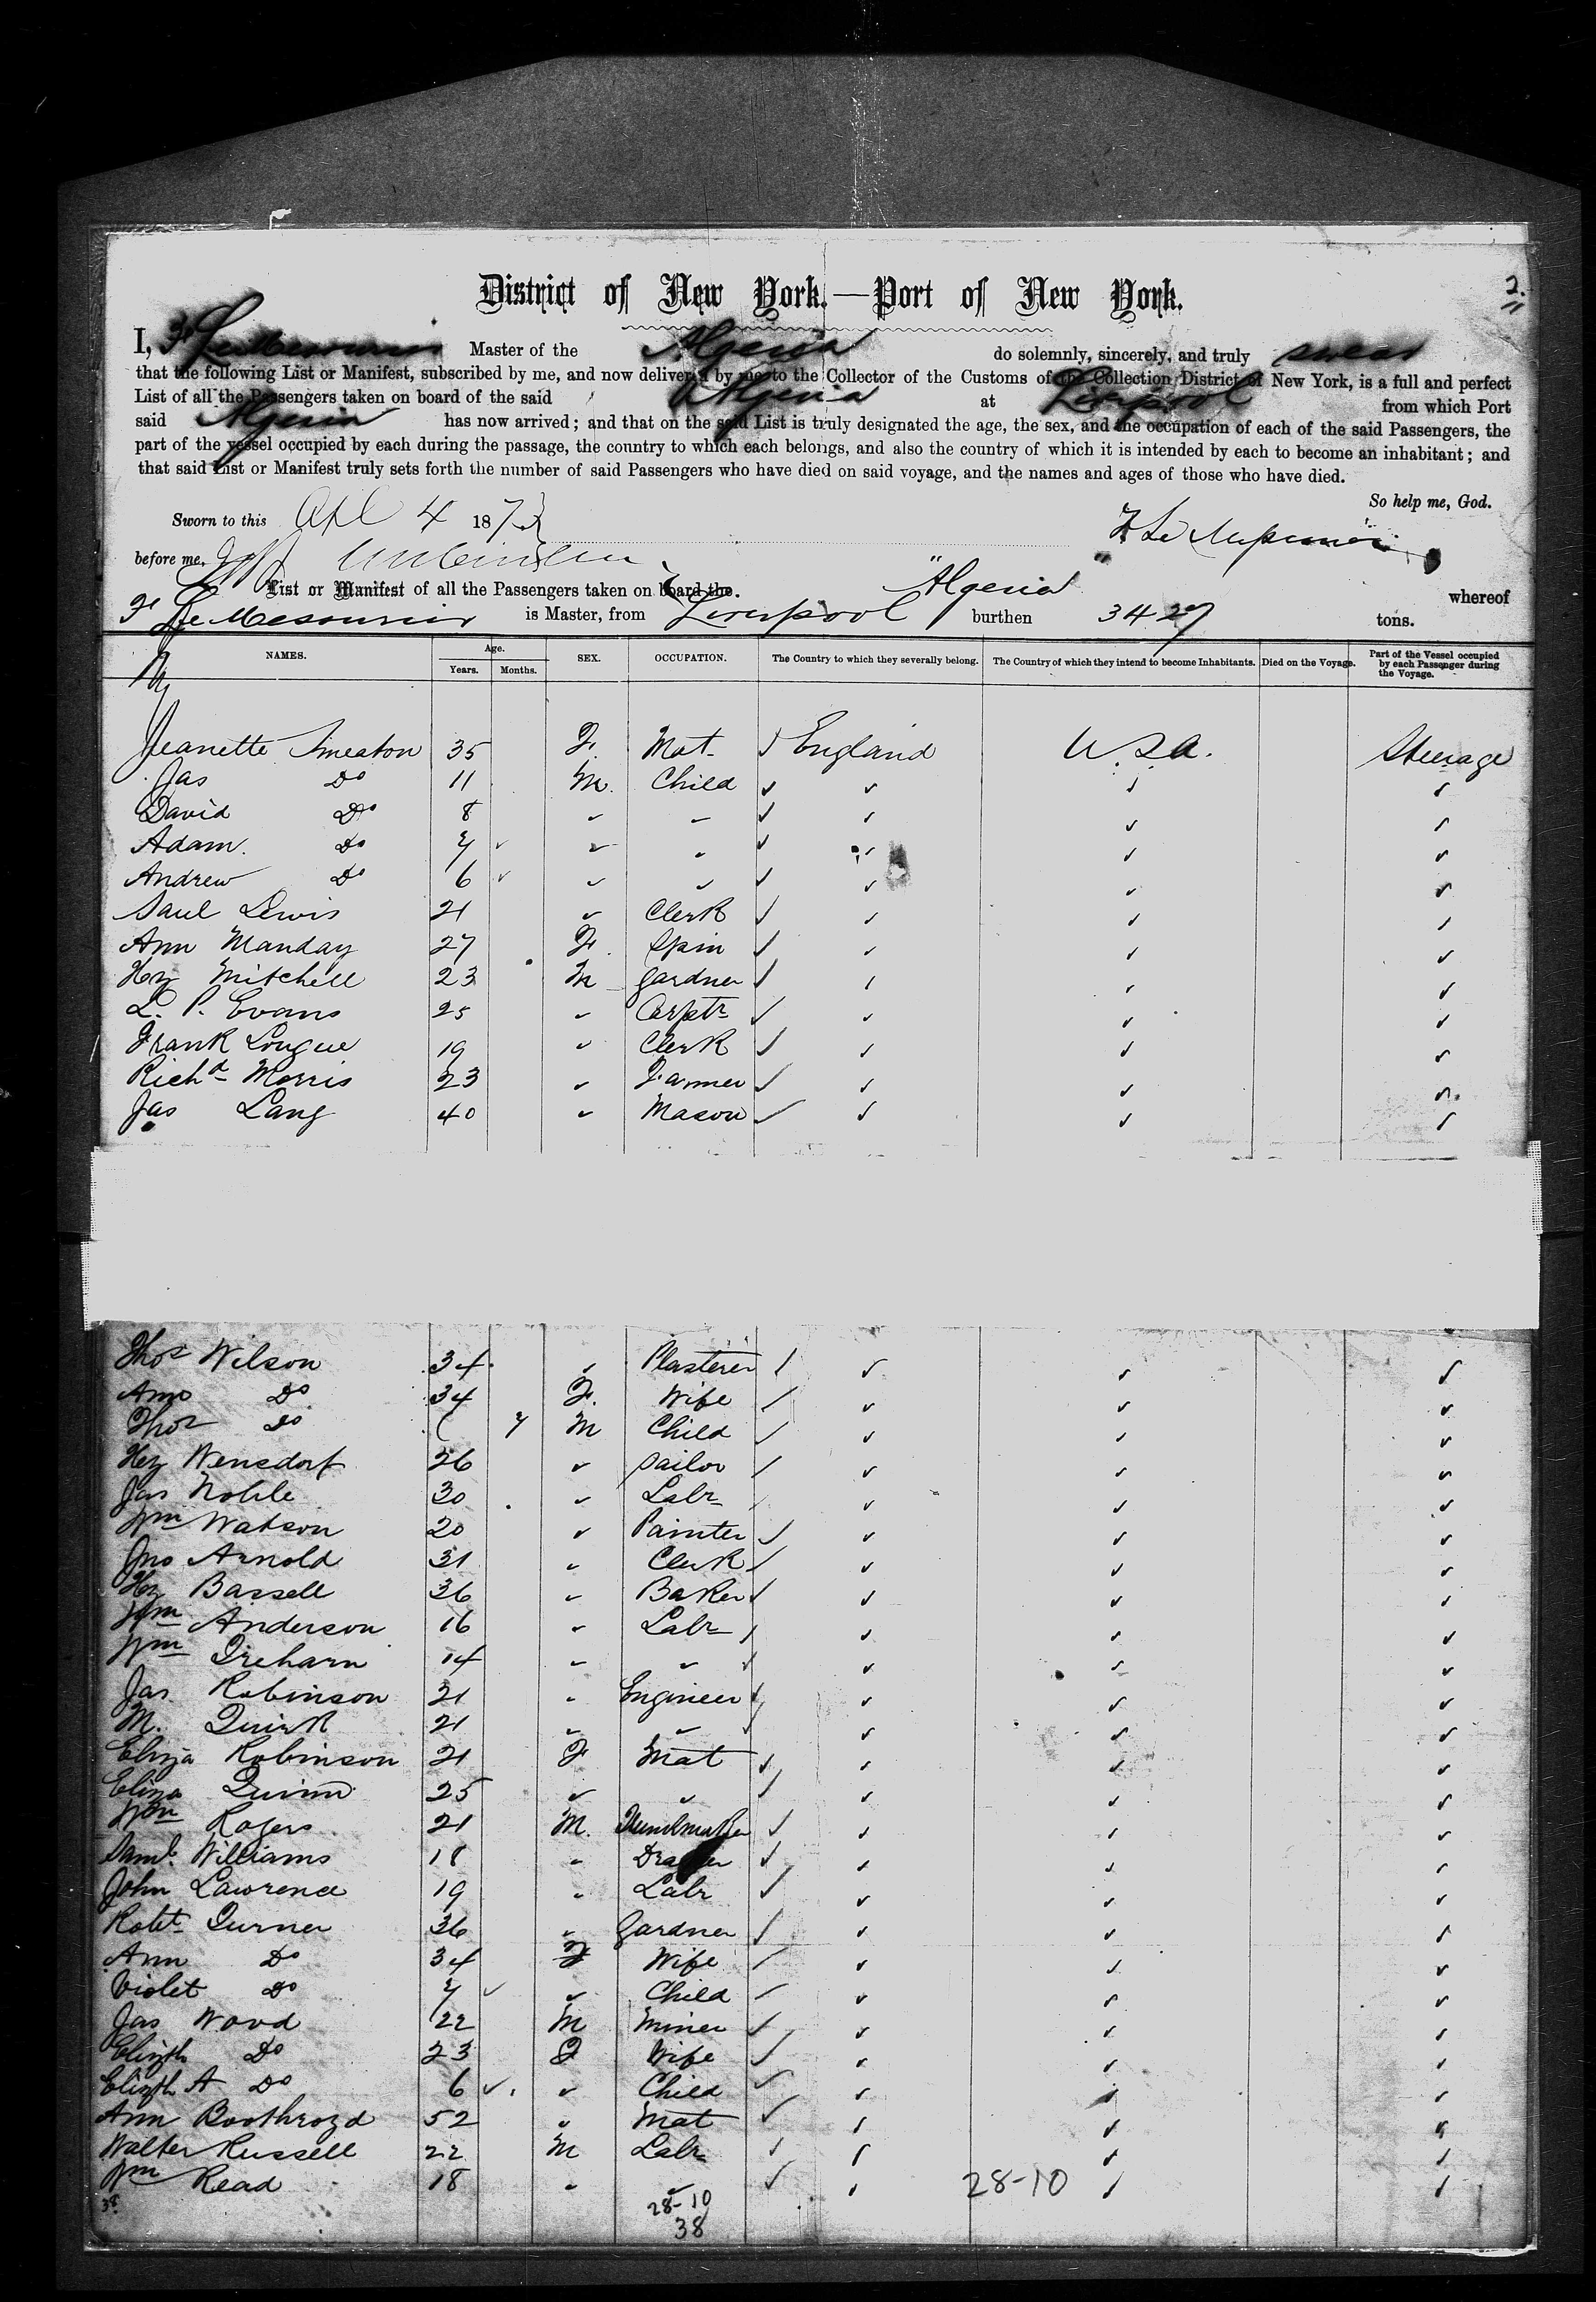 2.
District of New York.—Port of New York.
I, F. Le Mesurier Master of the Algeria do solemnly, sincerely, and truly swear
that the following List or Manifest, subscribed by me, and now delivered by me to the Collector of the Customs of the Collection District of New York, is a full and perfect
List of all the Passengers taken on board of the said Algeria at Liverpool from which Port
said Algeria has now arrived; and that on the said List is truly designated the age, the sex, and the occupation of each of the said Passengers, the
part of the vessel occupied by each during the passage, the country to which each belongs, and also the country of which it is intended by each to become an inhabitant; and
that said List or Manifest truly sets forth the number of said Passengers who have died on said voyage, and the names and ages of those who have died.
So help me, God.
Sworn to this Apl 4 1873
before me, F Le Mesurier
List or Manifest of all the Passengers taken on board the "Algeria" whereof
F Le Mesourier is Master, from Liverpool burthen 3427 tons.
NAMES. Age. Years. Months. SEX. OCCUPATION. The Country to which they severally belong. The Country of which they intend to become Inhabitants. Died on the Voyage. Part of the Vessel occupied by each Passenger during the Voyage.
Jeanette Smeaton 35 F. Mat England U.S.A. Steerage
Jas Do 11 M. Child
David Do 8
Adam Do 7
Andrew Do 6
Saul Lewis 21 Clerk
Ann Manday 27 F. Spin
Hy Mitchell 23 M gardner
L. P. Evans 25 Carptr
Frank Longue 19 Clerk
Richd Morris 23 Farmer
Jas Lang 40 Mason
Thos Wilson 34 Plasterer
Ann Do 34 F. Wife
Thos Do 7 M Child
Hy Wensdorf 26 Sailor
Jas Noble 30 Labr
Wm Watson 20 Painter
Jno Arnold 31 Clerk
Hy Bassell 36 Baker
Wm Anderson 16 Labr
Wm Treharn 14
Jas Robinson 21 Engineer
M. Quirk 21
Eliza Robinson 21 F Mat
Eliza Quinn 25
Wm Rogers 21 M. Trunkmaker
Saml. Williams 18 Draper
John Lawrence 19 Labr
Robt Turner 36 gardner
Ann Do 34 F Wife
Violet Do 7 Child
Jas Wood 22 M Miner
Elizth Do 23 F Wife
Elizth A Do 6 Child
Ann Boothroyd 52 Mat
Walter Russell 22 M Labr
Wm Read 18
28-10
28-10
38
38